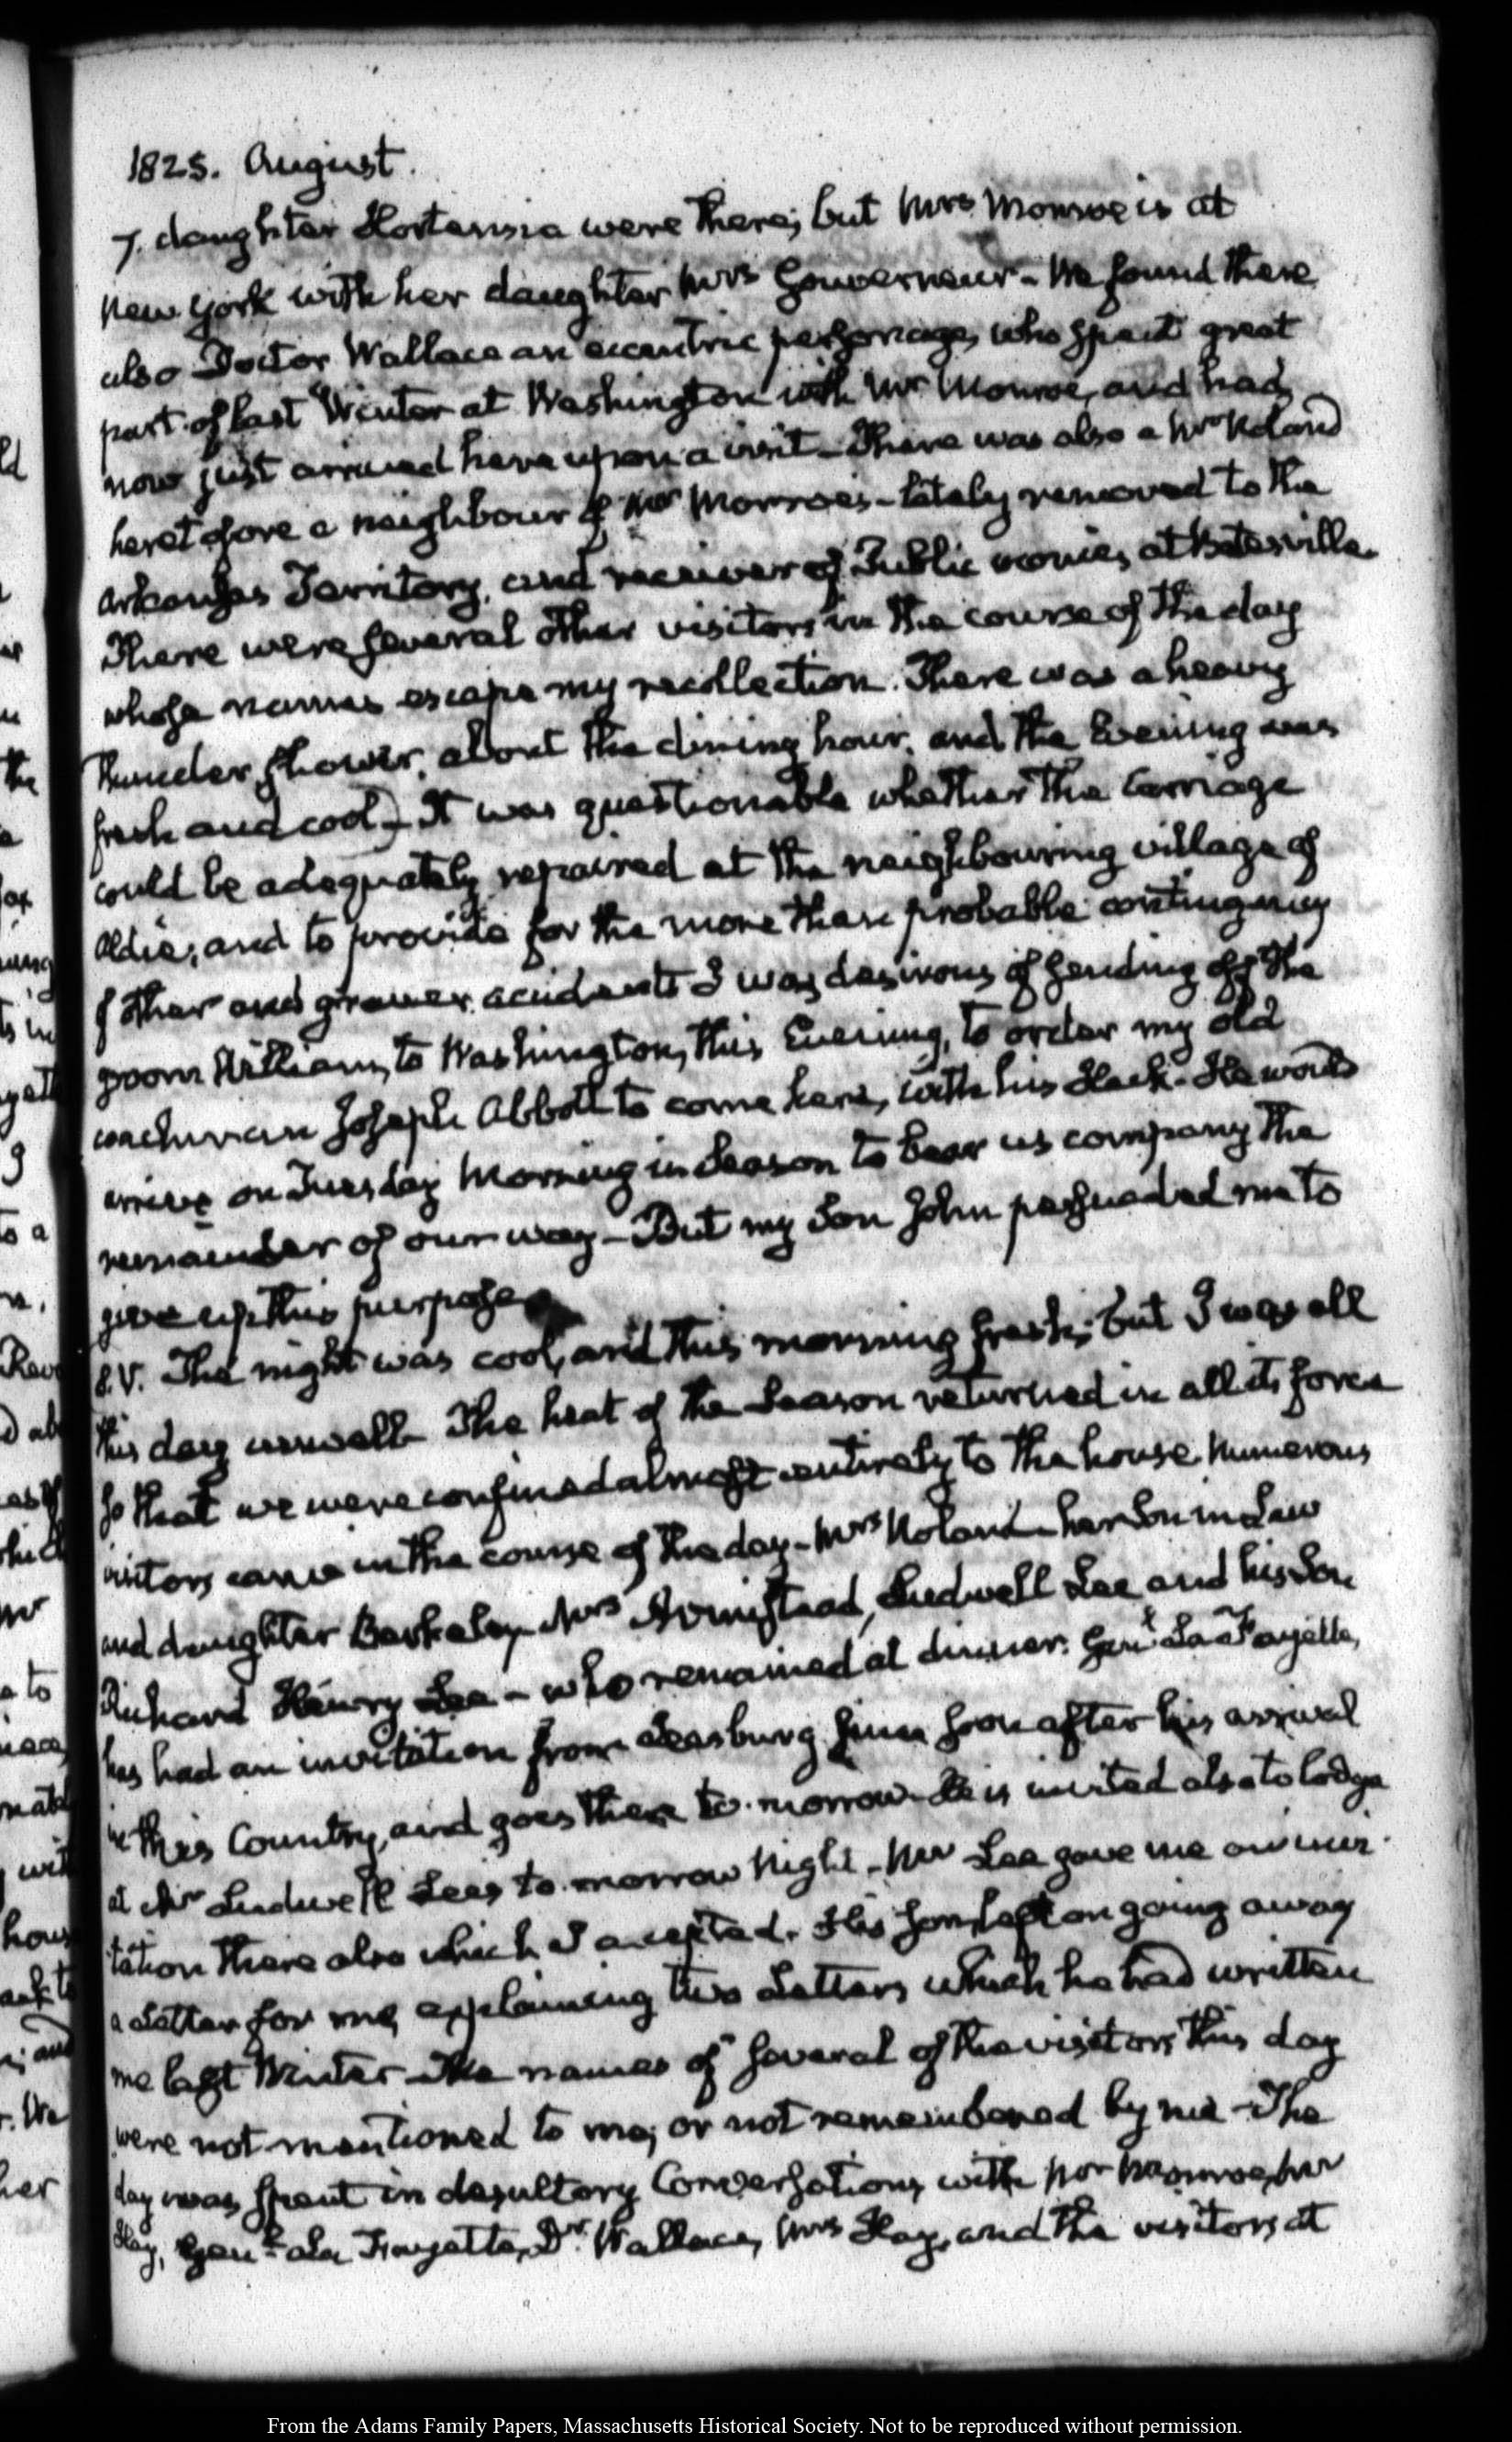 1825. August.
7. daughter Hortensia were there; but Mrs Monroe is at
New York with her daughter Mrs Gouverneur – We found there
also Doctor Wallace an eccentric personage, who spent great
part of last Winter at Washington with Mr Monroe, and had
now just arrived here upon a visit – There was also a Mr Noland
heretofore a neighbour of Mr Monroe's – lately removed to the
Arkansas Territory, and receiver of Public monies at Batesville.
There were several other visitors in the course of the day
whose names escape my recollection. There was a heavy
thunder shower, about the dining hour, and the Evening was
fresh and cool – It was questionable whether the Carriage
could be adequately repaired at the neighbouring village of
Aldie, and to provide for the more than probable contingency
of other and graver accidents I was desirous of sending off the
groom William, to Washington, this Evening, to order my old
coachman Joseph Abbott to come here, with his Hack. He would
arrive on Tuesday Morning in Season to bear us company the
remainder of our way – But my Son John persuaded me to
give up this purpose
8. V. The night was cool, and this morning fresh; but I was all
this day unwell. The heat of the Season returned in all its force
so that we were confined almost entirely to the house. Numerous
visitors came in the course of the day – Mrs Noland – her Son in Law
and daughter Berkeley – Mrs Armistead, Ludwell Lee and his Son
Richard Henry Lee – who remained at dinner. Genl La Fayette,
has had an invitation from Leesburg since soon after his arrival
in this Country, and goes there to-morrow. He is invited also to lodge
at Mr Ludwell Lee's to-morrow Night – Mr Lee gave me an invi-
tation there also which I accepted. His son, left on going away
a Letter for me, explaining two Letters which he had written
me last Winter – The names of several of the visitors this day
were not mentioned to me; or not remembered by me – The
day was spent in desultory Conversations with Mr Monroe, Mr
Hay, Genl La Fayette, Dr. Wallace, Mrs Hay, and the visitors at
From the Adams Family Papers, Massachusetts Historical Society. Not to be reproduced without permission.